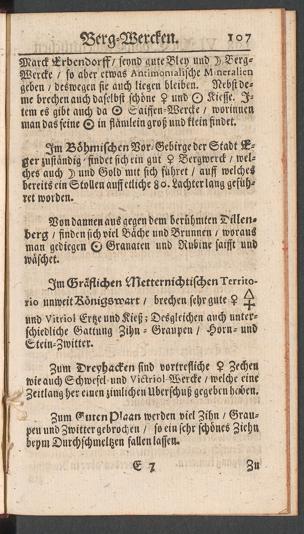 Berg-Wercken. 107
Marck Erbendorff / seynd gute Bley und ☽ Berg-
Wercke / so aber etwas Antimonialische Mineralien
geben / deswegen sie auch liegen bleiben. Nebst de-
me brechen auch daselbst schöne ♀ und ☉ Kiesse. J-
tem es gibt auch da ☉ Saiffen-Wercke / worinnen
man das feine ☉ in fläulein groß und klein findet.
Im Böhmischen Vor-Gebirge der Stadt E-
ger zuständig / findet sich ein gut ♀ Bergwerck / wel-
ches auch ☽ und Gold mit sich führet / auff welches
bereits ein Stollen auff etliche 80. Lachter lang gefüh-
ret worden.
Von dannen aus gegen dem berühmten Dillen-
berg / finden sich viel Bäche und Brunnen / woraus
man gediegen ☉ Granaten und Rubine saifft und
wäschet.
Im Gräflichen Metternichtischen Territo-
rio unweit Königswart / brechen sehr gute ♀ 🜍
und Vitriol Ertze und Kieß; Desgleichen auch unter-
schiedliche Gattung Zihn-Graupen / Horn- und
Stein-Zwitter.
Zum Dreyhacken sind vortrefliche ♀ Zechen
wie auch Schwefel- und Victriol-Wercke / welche eine
Zeitlang her einen zimlichen Uberschuß gegeben haben.
Zum Guten Plaan werden viel Zihn / Grau-
pen und Zwitter gebrochen / so ein sehr schönes Ziehn
beym Durchschmeltzen fallen lassen.
E 7 Zu